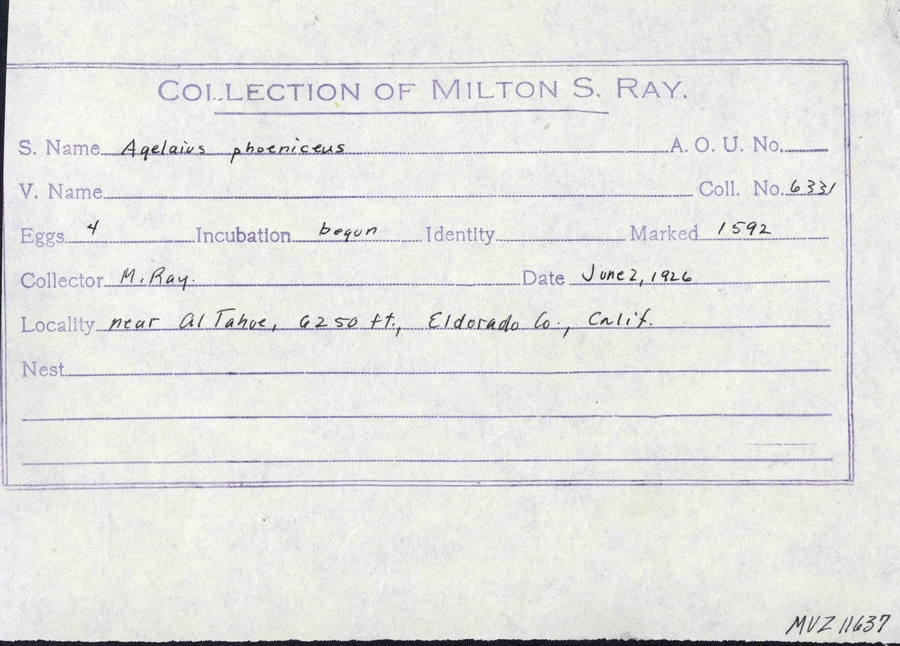 COLLECTION OF MILTON S. RAY.
S. Name Agelaius phoeniceus A. O. U. No.
V. Name Coll. No. 6331
Eggs 4 Incubation begun Identity Marked 1592
Collector M. Ray. Date June 2, 1926
Locality near Al Tahoe, 6250 ft., Eldorado Co., Calif.
Nest
MVZ 11637